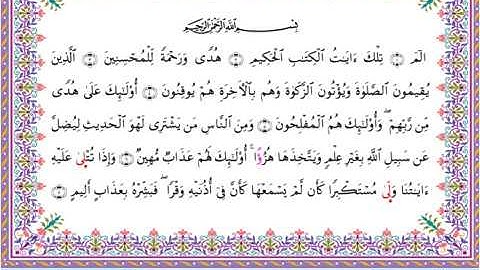 بِسْمِ اللَّهِ الرَّحْمَٰنِ الرَّحِيمِ
الٓمٓ ۝ تِلْكَ ءَايَٰتُ الْكِتَٰبِ الْحَكِيمِ ۝ هُدًى وَرَحْمَةً لِّلْمُحْسِنِينَ ۝ الَّذِينَ
يُقِيمُونَ الصَّلَوٰةَ وَيُؤْتُونَ الزَّكَوٰةَ وَهُم بِالْءَاخِرَةِ هُمْ يُوقِنُونَ ۝ أُوْلَٰٓئِكَ عَلَىٰ هُدًى
مِّن رَّبِّهِمْ ۖ وَأُوْلَٰٓئِكَ هُمُ الْمُفْلِحُونَ ۝ وَمِنَ النَّاسِ مَن يَشْتَرِى لَهْوَ الْحَدِيثِ لِيُضِلَّ
عَن سَبِيلِ اللَّهِ بِغَيْرِ عِلْمٍ وَيَتَّخِذَهَا هُزُوًا ۚ أُوْلَٰٓئِكَ لَهُمْ عَذَابٌ مُّهِينٌ ۝ وَإِذَا تُتْلَىٰ عَلَيْهِ
ءَايَٰتُنَا وَلَّىٰ مُسْتَكْبِرًا كَأَن لَّمْ يَسْمَعْهَا كَأَنَّ فِىٓ أُذُنَيْهِ وَقْرًا ۖ فَبَشِّرْهُ بِعَذَابٍ أَلِيمٍ ۝